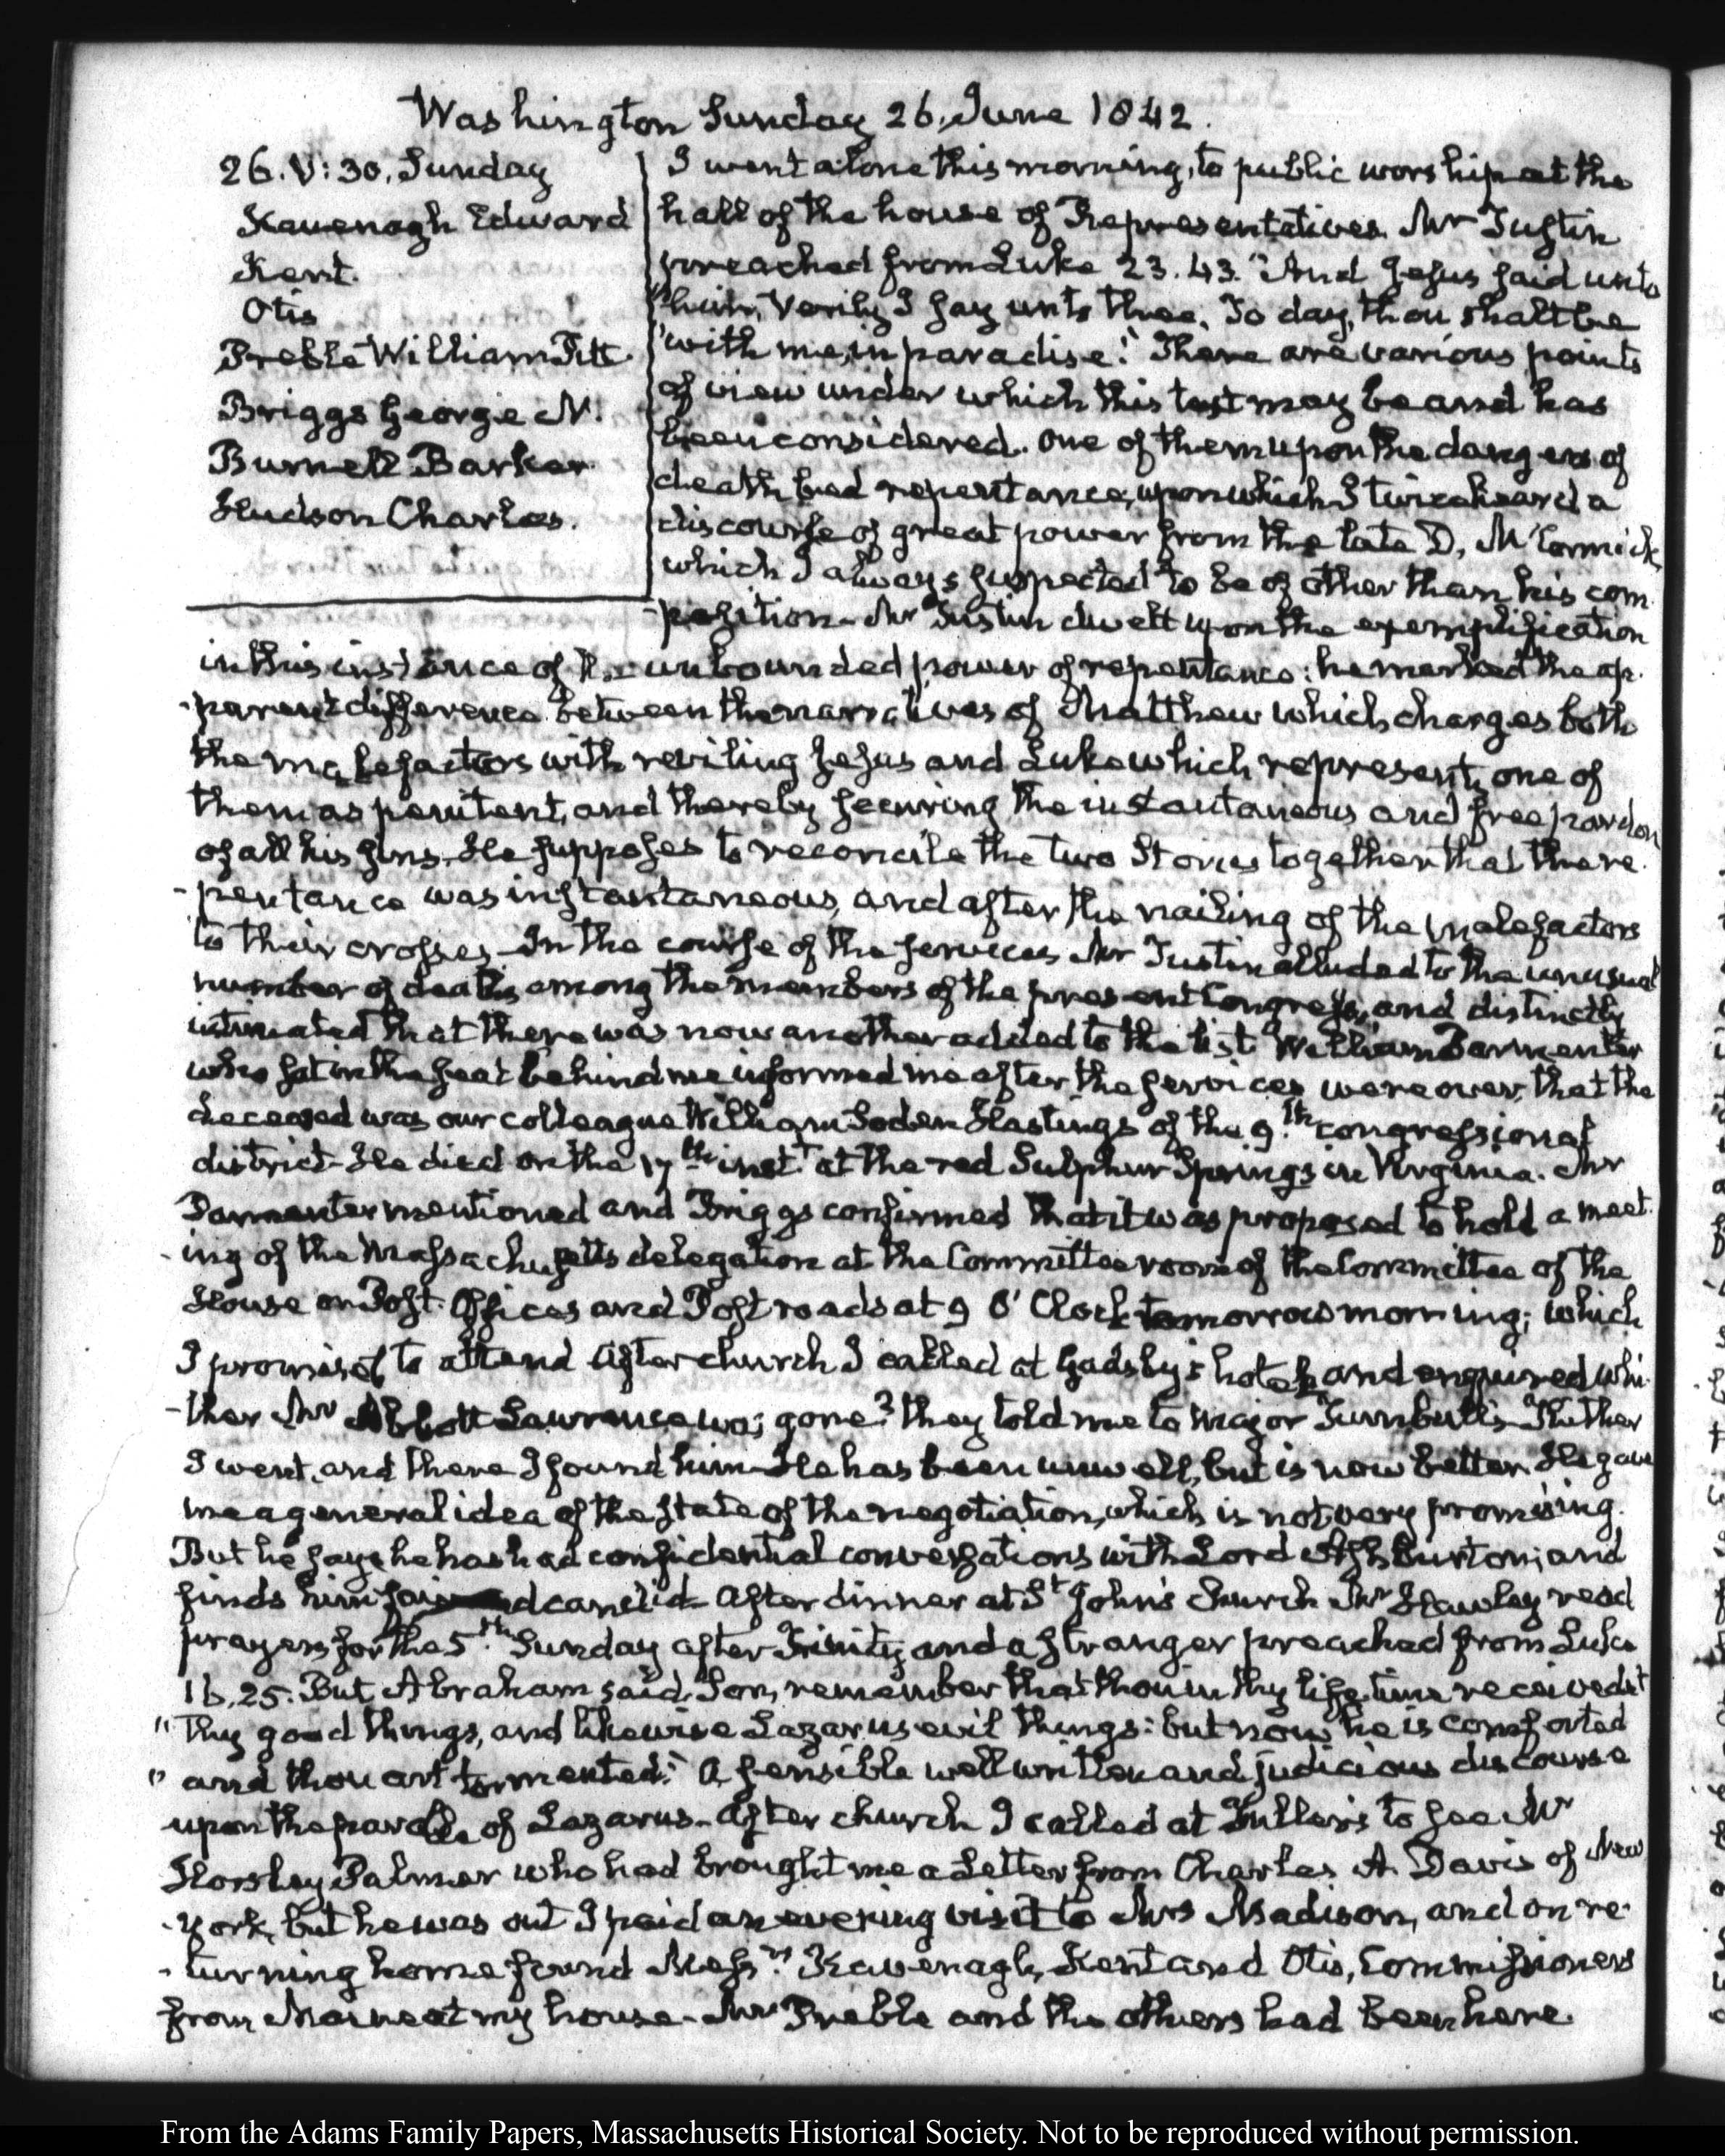 Washington Sunday 26. June 1842.
26. V: 30. Sunday
Kavenagh Edward
Kent.
Otis
Preble William Pitt.
Briggs George N.
Burnell Barker
Hudson Charles.
I went alone this morning, to public worship at the
hall of the house of Representatives. Mr Tustin
preached from Luke 23. 43. "And Jesus said unto
"him, Verily I say unto thee, To day, thou shalt be
"with me, in paradise." There are various points
of view under which this text may be and has
been considered. One of them upon the dangers of
death bed repentance, upon which I twice heard a
discourse of great power from the late D, McCormick,
which I always suspected to be of other than his com
-position - Mr Tustin dwelt upon the exemplification
in this instance of the unbounded power of repentance: he marked the ap-
-parent difference between the narratives of Matthew which charges both
the malefactors with reviling Jesus and Luke which represents one of
them as penitent, and thereby securing the instantaneous and free pardon
of all his sins. He supposes to reconcile the two Stories together that the re-
-pentance was instantaneous, and after the nailing of the malefactors
to their crosses - In the course of the services Mr Tustin alluded to the unusual
number of deaths among the members of the present Congress, and distinctly
intimated that there was now another added to the list. William Parmenter
who sat in the seat behind me informed me after the services were over, that the
deceased was our colleague William Soden Hastings of the 9.th congressional
district - He died on the 17th inst.t at the red Sulphur Springs in Virginia. Mr
Parmenter mentioned and Briggs confirmed that it was proposed to hold a meet-
-ing of the Massachusetts delegation at the Committee room of the Committee of the
House on Post-Offices and Post roads at 9 O'Clock tomorrow morning; which
I promised to attend After church I called at Gadsby's hotel, and enquired whi-
-ther Mr Abbott Lawrence was gone? they told me to Major Turnbull's - Thither
I went, and there I found him - He has been unwell, but is now better. He gave
me a general idea of the state of the negotiation, which is not very promising.
But he says he has had confidential conversations with Lord Ashburton; and
finds him fair and candid - After dinner at St John's church Mr Hawley read
prayers for the 5.th Sunday after Trinity, and a stranger preached from Luke
16. 25. But Abraham said, Son, remember that thou in thy life time receivedst
"thy good things, and likewise Lazarus evil things: but now he is comforted
" and thou art tormented." A sensible well written and judicious discourse
upon the parable of Lazarus - After church I called at Fuller's to see Mr
Horsley Palmer who had brought me a Letter from Charles A. Davis of New
-York, but he was out I paid an evening visit to Mrs Madison, and on re-
-turning home found Messrs Kavenagh, Kent and Otis, Commissioners
from Maine at my house - Mr Preble and the others had been here.
From the Adams Family Papers, Massachusetts Historical Society. Not to be reproduced without permission.